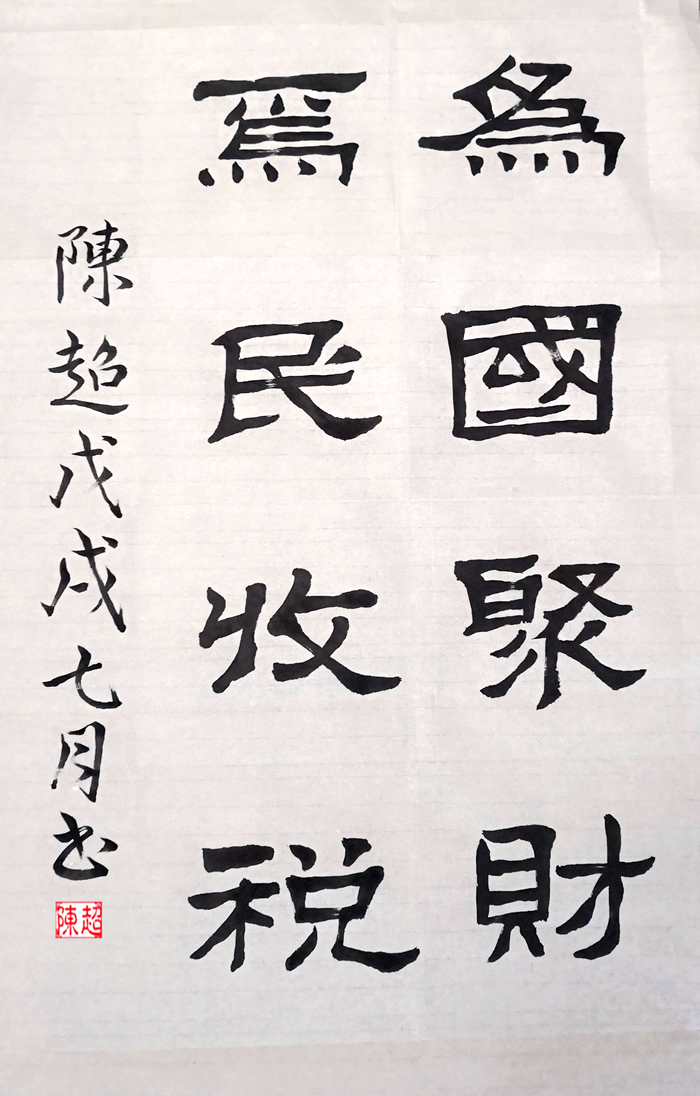 為國聚財
為民收税
陳超戊戌七月书
陳超